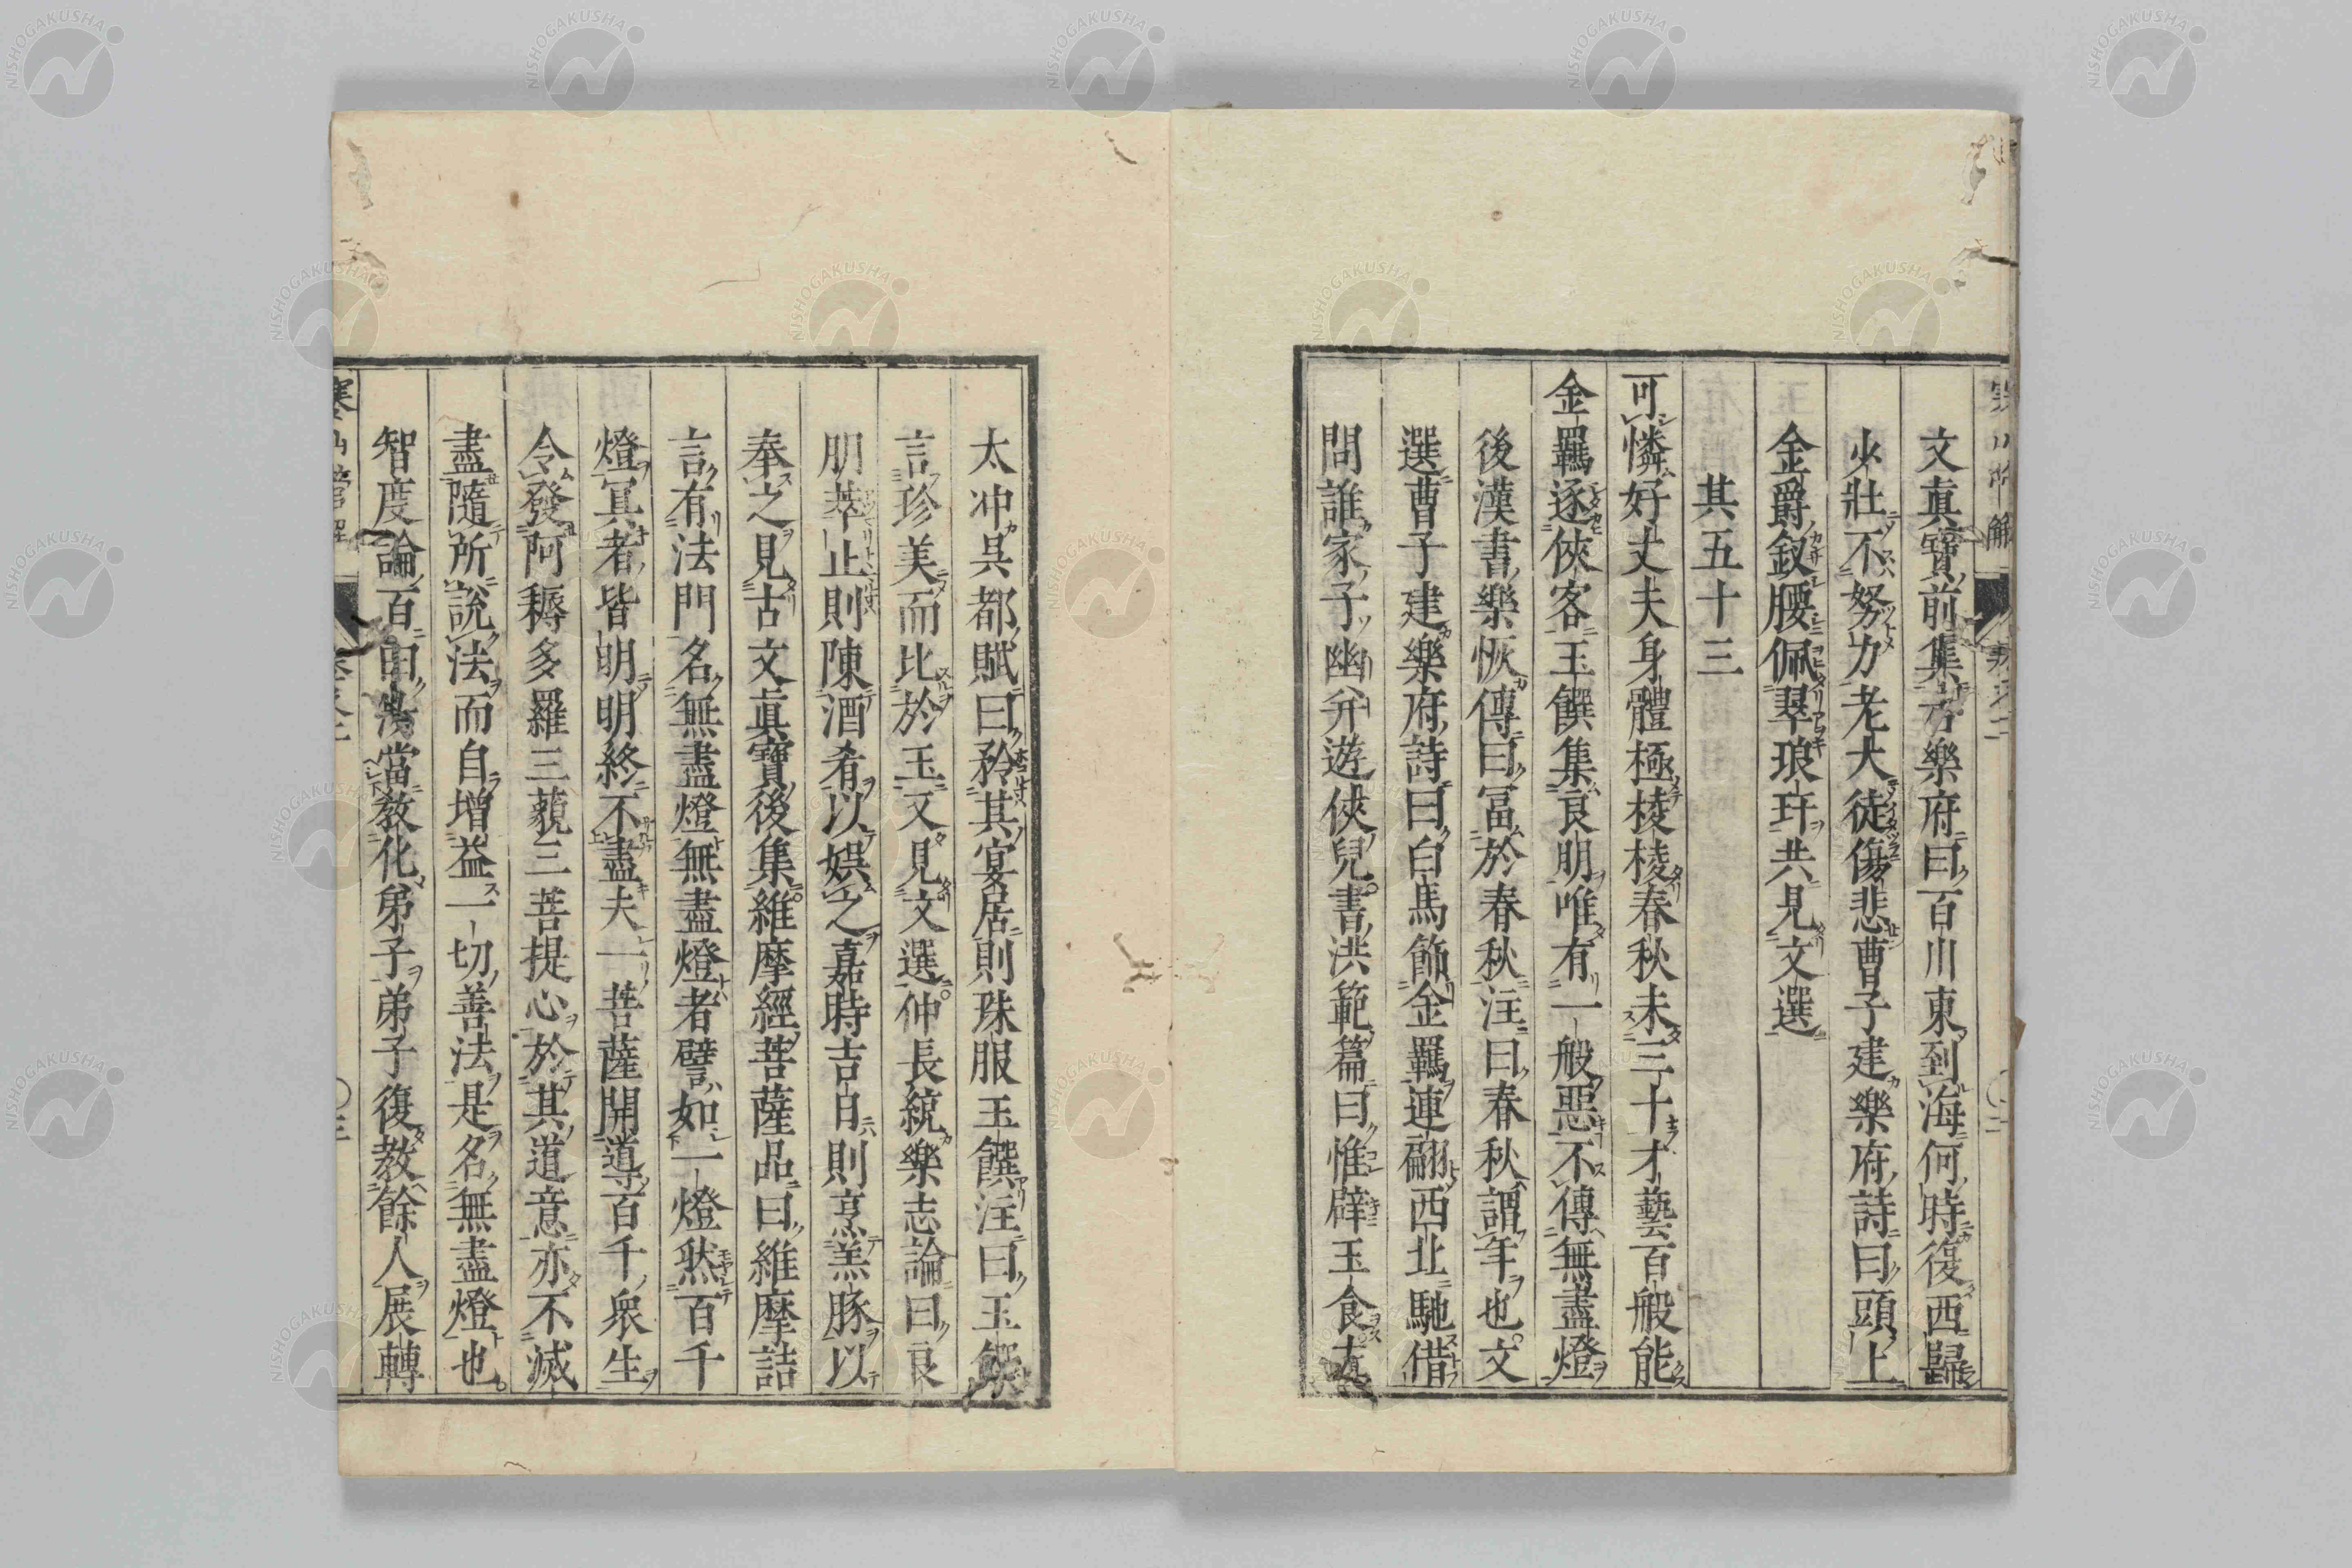 文眞寶前集古樂府曰百川東到海何時復西歸
少壯不努力老大徒傷悲曹子建樂府詩曰頭上
金爵釵腰佩翠琅玕共見文選
其五十三
可憐好丈夫身體極棱棱春秋未三十才藝百般能
金羈逐俠客玉饌集良朋唯有一般惡不傳無盡燈
後漢書樂恢傳曰冨於春秋注曰春秋謂年也文
選曹子建樂府詩曰白馬飾金羈連翩西北馳借
問誰家子幽并遊俠兒書洪範篇曰惟辟玉食
太冲吳都賦曰矜其宴居則珠服玉饌注曰玉饌
言珍美而比於玉又見文選仲長統樂志論曰良
朋萃止則陳酒肴以娯之嘉時吉日則烹羔豚以
奉之見古文眞寶後集維摩經菩薩品曰維摩詰
言有法門名無盡燈無盡燈者譬如一燈然百千
燈冥者皆明明終不盡夫一菩薩開導百千衆生
令發阿耨多羅三藐三菩提心於其道意亦不滅
盡隨所說法而自增益一切善法是名無盡燈也
智度論百由當教化弟子弟子復教餘人展轉
NISHOGAKUSHA